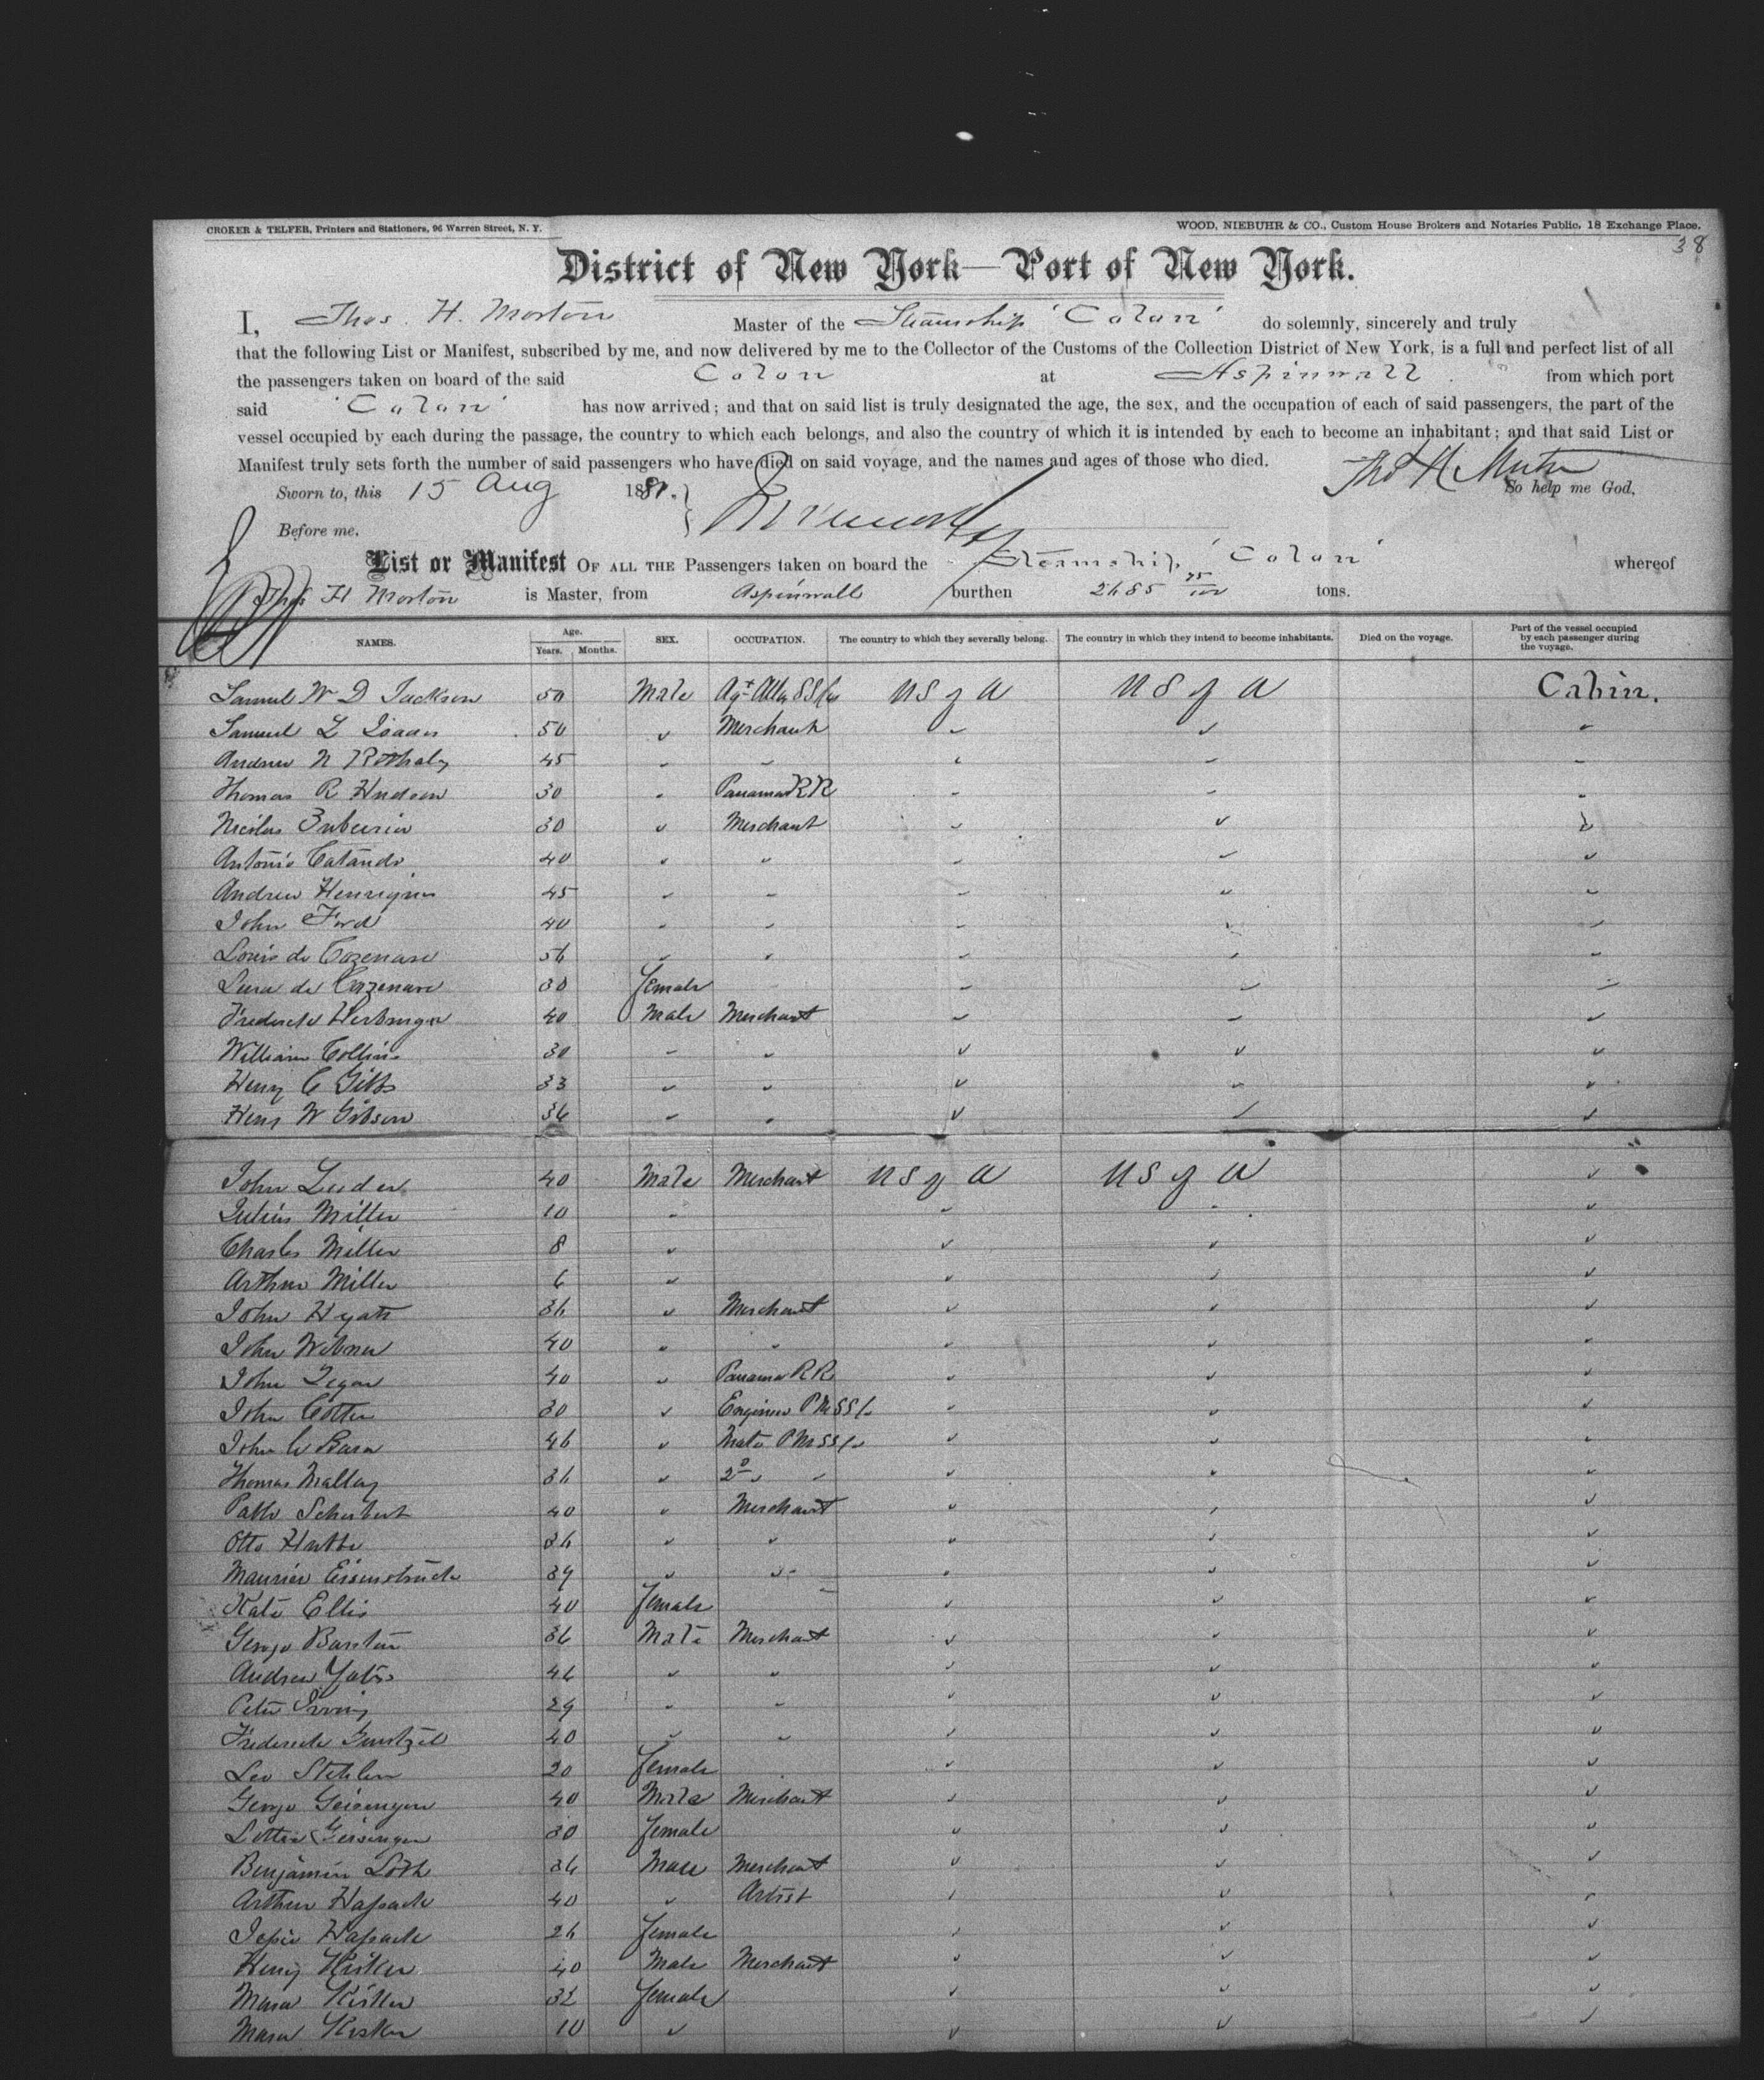 CROKER & TELFER, Printers and Stationers, 96 Warren Street, N. Y. WOOD, NIEBUHR & CO., Custom House Brokers and Notaries Public, 18 Exchange Place.
38
District of New York—Port of New York.
I, Thos. H. Morton Master of the Steamship 'Colon' do solemnly, sincerely and truly
that the following List or Manifest, subscribed by me, and now delivered by me to the Collector of the Customs of the Collection District of New York, is a full and perfect list of all
the passengers taken on board of the said Colon at Aspinwall from which port
said 'Colon' has now arrived; and that on said list is truly designated the age, the sex, and the occupation of each of said passengers, the part of the
vessel occupied by each during the passage, the country to which each belongs, and also the country of which it is intended by each to become an inhabitant; and that said List or
Manifest truly sets forth the number of said passengers who have died on said voyage, and the names and ages of those who died.
Sworn to, this 15 Aug 1881. So help me God,
Before me.
List or Manifest OF ALL THE Passengers taken on board the Steamship 'Colon' whereof
Thos H Morton is Master, from Aspinwall burthen 2685 tons.
NAMES. Age. Years. Months. SEX. OCCUPATION. The country to which they severally belong. The country in which they intend to become inhabitants. Died on the voyage. Part of the vessel occupied by each passenger during the voyage.
Samuel W D Jackson 50 Male U S of A U S of A Cabin.
Samuel L Isaacs 50 " Merchant " " "
Andrew N 45 " " " " "
Thomas R Hudson 30 " Panama RR " " "
Nicolas 30 " Merchant " " "
Antonio Catando 40 " " " " "
Andrew Henriques 45 " " " " "
John Ford 40 " " " " "
Louis de Cazenave 56 " " " " "
de Cazenave 30 Female " " "
Frederick 40 Male Merchant " " "
William Collins 30 " " " " "
Henry C Gibbs 33 " " " " "
Henry W Gibson 36 " " " " "
John 40 Male Merchant U S of A U S of A "
Julius Miller 10 " " " "
Charles Miller 8 " " " "
Arthur Miller 6 " " " "
John Hyatt 36 " Merchant " " "
John 40 " " " " "
John 40 " Panama RR " " "
John Cotter 30 " Engineer P M SS Co " " "
John W 46 " Mate P M SS Co " " "
Thomas Mallay 36 " 2D " " " " "
Pablo Schubert 40 " Merchant " " "
Otto 36 " " " " "
Maurice Eisenstruck 39 " " " " "
Kate Ellis 40 Female " " "
George Barston 36 Male Merchant " " "
Andrew Yates 46 " " " " "
Peter Irving 29 " " " " "
Frederick 40 " " " " "
Leo Stehlen 20 Female " " "
George Geisenger 40 Male Merchant " " "
Lottie Geisenger 30 Female " " "
Benjamin Loth 36 Male Merchant " " "
Arthur 40 " Artist " " "
26 Female " " "
Henry Kisker 40 Male Merchant " " "
Mara Kisker 32 Female " " "
Mara Kisker 10 " " " "